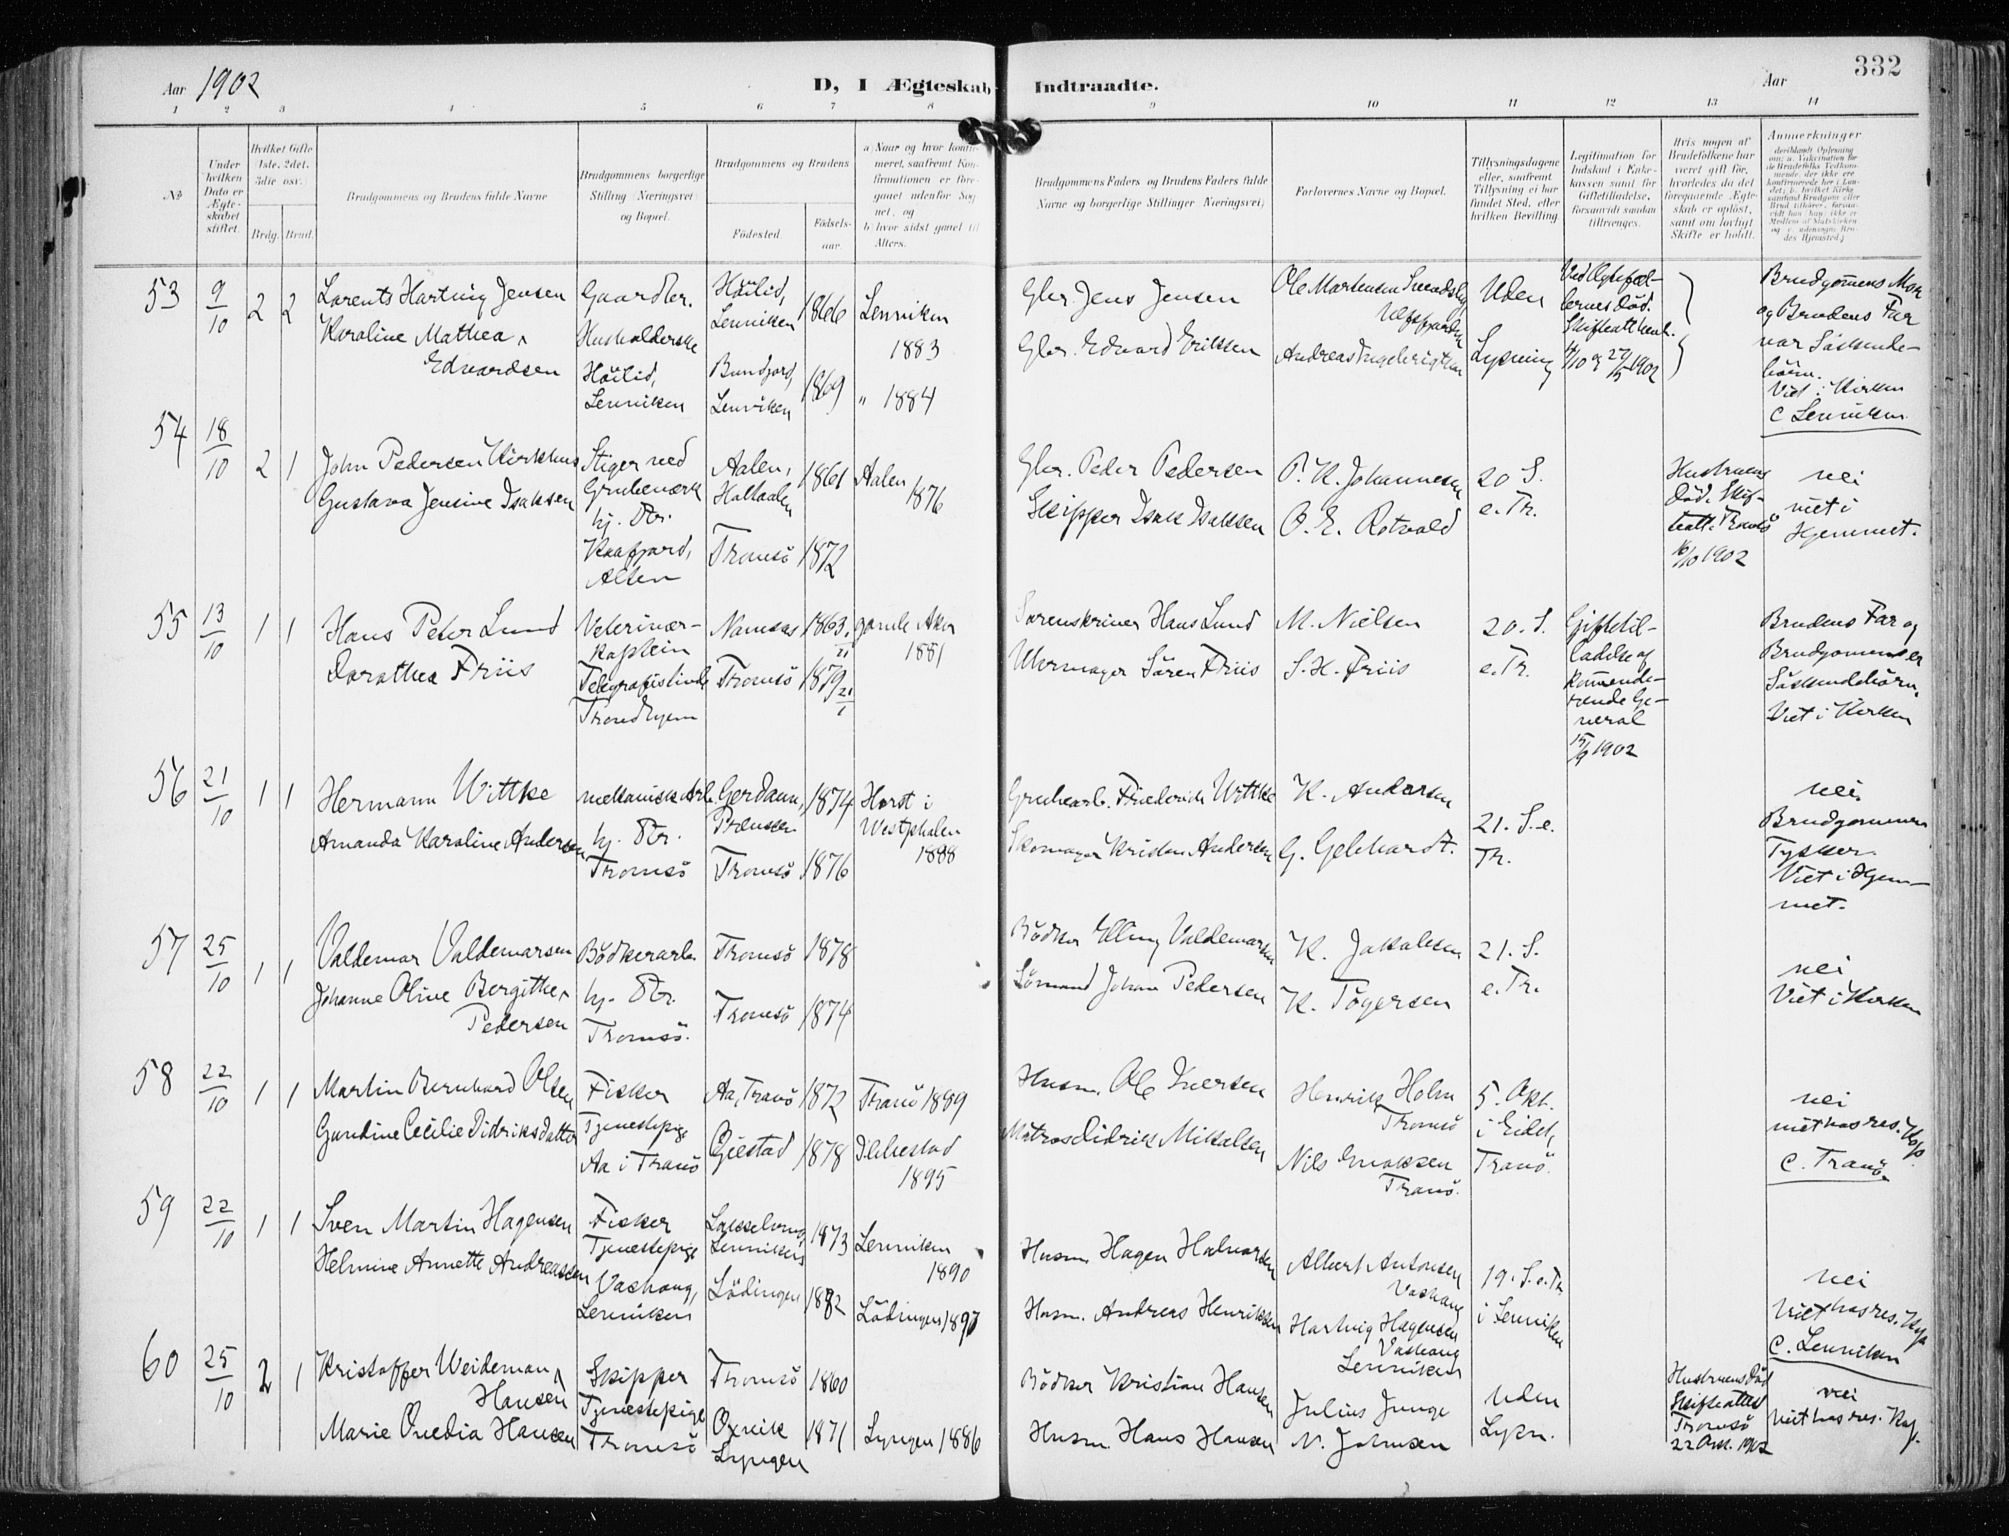 332
Aar 1902
D, I Ægteskab Indtraadte.
Aar
1 2 3 4 5 6 7 8 9 10 11 12 13 14
No
Under hvilken Dato er Ægteskabet stiftet.
Hvilket Gifte 1ste, 2det, 3die osv.
Brdg. Brud.
Brudgommens og Brudens fulde Navne
Brudgommens borgerlige Stilling (Næringsvei) og Bopæl.
Brudgommens og Brudens
Fødested.
Fødselsaar.
Brudgommens Faders og Brudens Faders fulde Navne og borgerlige Stillinger (Næringsvei)
Forlovernes Navne og Bopæl.
Tillysningsdagene eller, saafremt Tillysning ei har fundet Sted, efter hvilken Bevilling.
Legitimation for Indskud i Enkekassen samt for Giftetilladelse, forsaavidt saadan tiltrænges.
Hvis nogen af Brudefolkene har været gift før, hvorledes da det foregaaende Ægteskab er opløst, samt om lovligt Skifte er holdt.
Anmerkninger
53 9/10 2 2
Lorents Hartvig Jensen
Karoline Mathea
Edvardsen
Gaardbr.
Husholderske
Höilid,
Lenviken
Höilid,
Lenviken 1866
Bundjord,
Lenviken 1869
Lenviken
1883
" 1884
Gbr. Jens Jensen
Gbr. Edvard Eriksen
Ole Martensen
Andreas Ingebrigtsen
Uden
Lysning
Brudgommens Mor
og Brudens Far
var Söskende-
börn.
Viet i Kirken
C Lenviken
54 18/10 2 1
John Pedersen Kirkhus
Gustava Jensine Isaksen
Stiger ved
Grubeværk
hj. Str.
Kaafjord,
Alten
Aalen,
Holtaalen 1861
Tromsö 1872
Aalen
1876
Gbr. Peder Pedersen
Skipper Isak Isaksen
P. K. Johannesen
O. E. Rotvold
20 S.
e. Tr.
Hustruens
Död. Skif-
teatt. Tromsö
16/10 1902
nei
viet i
Hjemmet.
55 13/10 1 1
Hans Peter Lund
Dorothea Friis
Veterinær-
kaptein
Telegrafistinde
Trondhjem
Namsos 1863
Tromsö 1879 21/1
gamle Aker
1881
Sorenskriver Hans Lund
Uhrmager Sören Friis
M. Nielsen
S. H. Friis
20. S.
e. Tr.
Giftetil-
ladelse af
kommende-
rende Ge-
neral
15/9 1902
Brudens Far og
Brudgommens er
Söskendebörn.
Viet i Kirken
56 21/10 1 1
Hermann Wittke
Amanda Karoline Andersen
mekanisk Arb.
hj. Str.
Tromsö
Gerdauen,
Preussen 1874
Tromsö 1876
Horst i
Westphalen
1888
Grubearb. Friederich Wittke
Skomager Kristen Andersen
K. Andersen
G. Gebhardt.
21. S. e.
Tr.
nei
Brudgommen
Tysker.
Viet i Hjem-
met.
57 25/10 1 1
Valdemar Valdemarsen
Johanne Olive Bergithe
Pedersen
Bödkerarb.
hj. Str.
Tromsö.
Tromsö 1878
Tromsö 1874
Bödker Elling Valdemarsen
Sömand Johan Pedersen
K. Jakobsen
K. Tögersen
21. S.
e. Tr.
nei
Viet i Kirken
58 22/10 1 1
Martin Bernhard Olsen
Gundine Cecilie Didriksdatter
Fisker
Tjenestepige
Aa i Tranö
Aa, Tranö 1872
Gjestad 1878
Tranö 1889
Dibbestad
1895
Husm. Ole Iversen
Matros Didrik Mikalsen
Henrik Holm
Tromsö
Nils Enoksen
Tranö.
5. Okt.
i Eidet,
Tranö.
nei
viet hos res. Kap.
C. Tranö.
59 22/10 1 1
Sven Martin Hagensen
Helmine Annette Andreassen
Fisker
Tjenestepige
Vashaug,
Lenviken
Lenviken 1873
Lödingen 1882
Lenviken
1890
Lödingen 1897
Husm. Hagen Halvorsen
Husm. Andreas Henriksen
Albert Antonsen
Vashaug
Hartvig Hagensen
Vashaug
Lenviken
19. S. e. Tr.
i Lenviken
nei
Viet hos res. Kap
C. Lenviken
60 25/10 2 1
Kristoffer Weideman
Hansen
Marie Ovedia Hansen
Skipper
Tjenestepige
Tromsö
Tromsö 1860
Oxvik
Lyngen 1871
Lyngen 1886
Bödker Kristian Hansen
Husm. Hans Hansen
Julius Junge
N. Johnsen
Uden
Lysn.
Hustruens Död
Skifteattest
Tromsö
22 Okt. 1902
nei
Viet hos res. Kap.